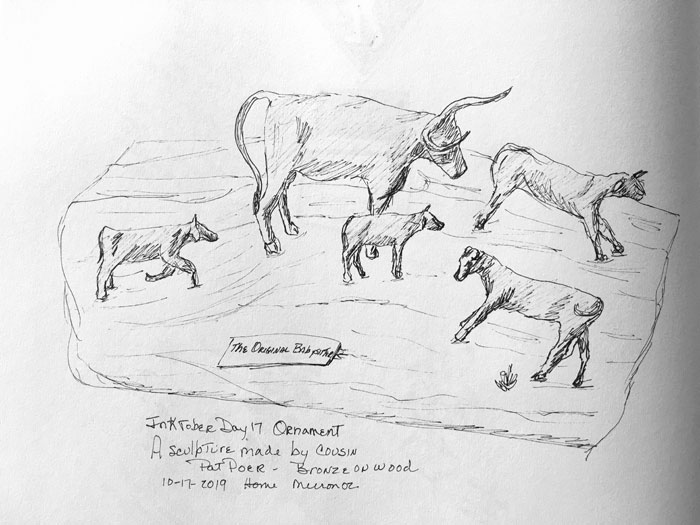 The Original Babysitter
InkTober Day 17 Ornament
A sculpture made by cousin
Pat Poer - Bronze on wood
10-17-2019 Home